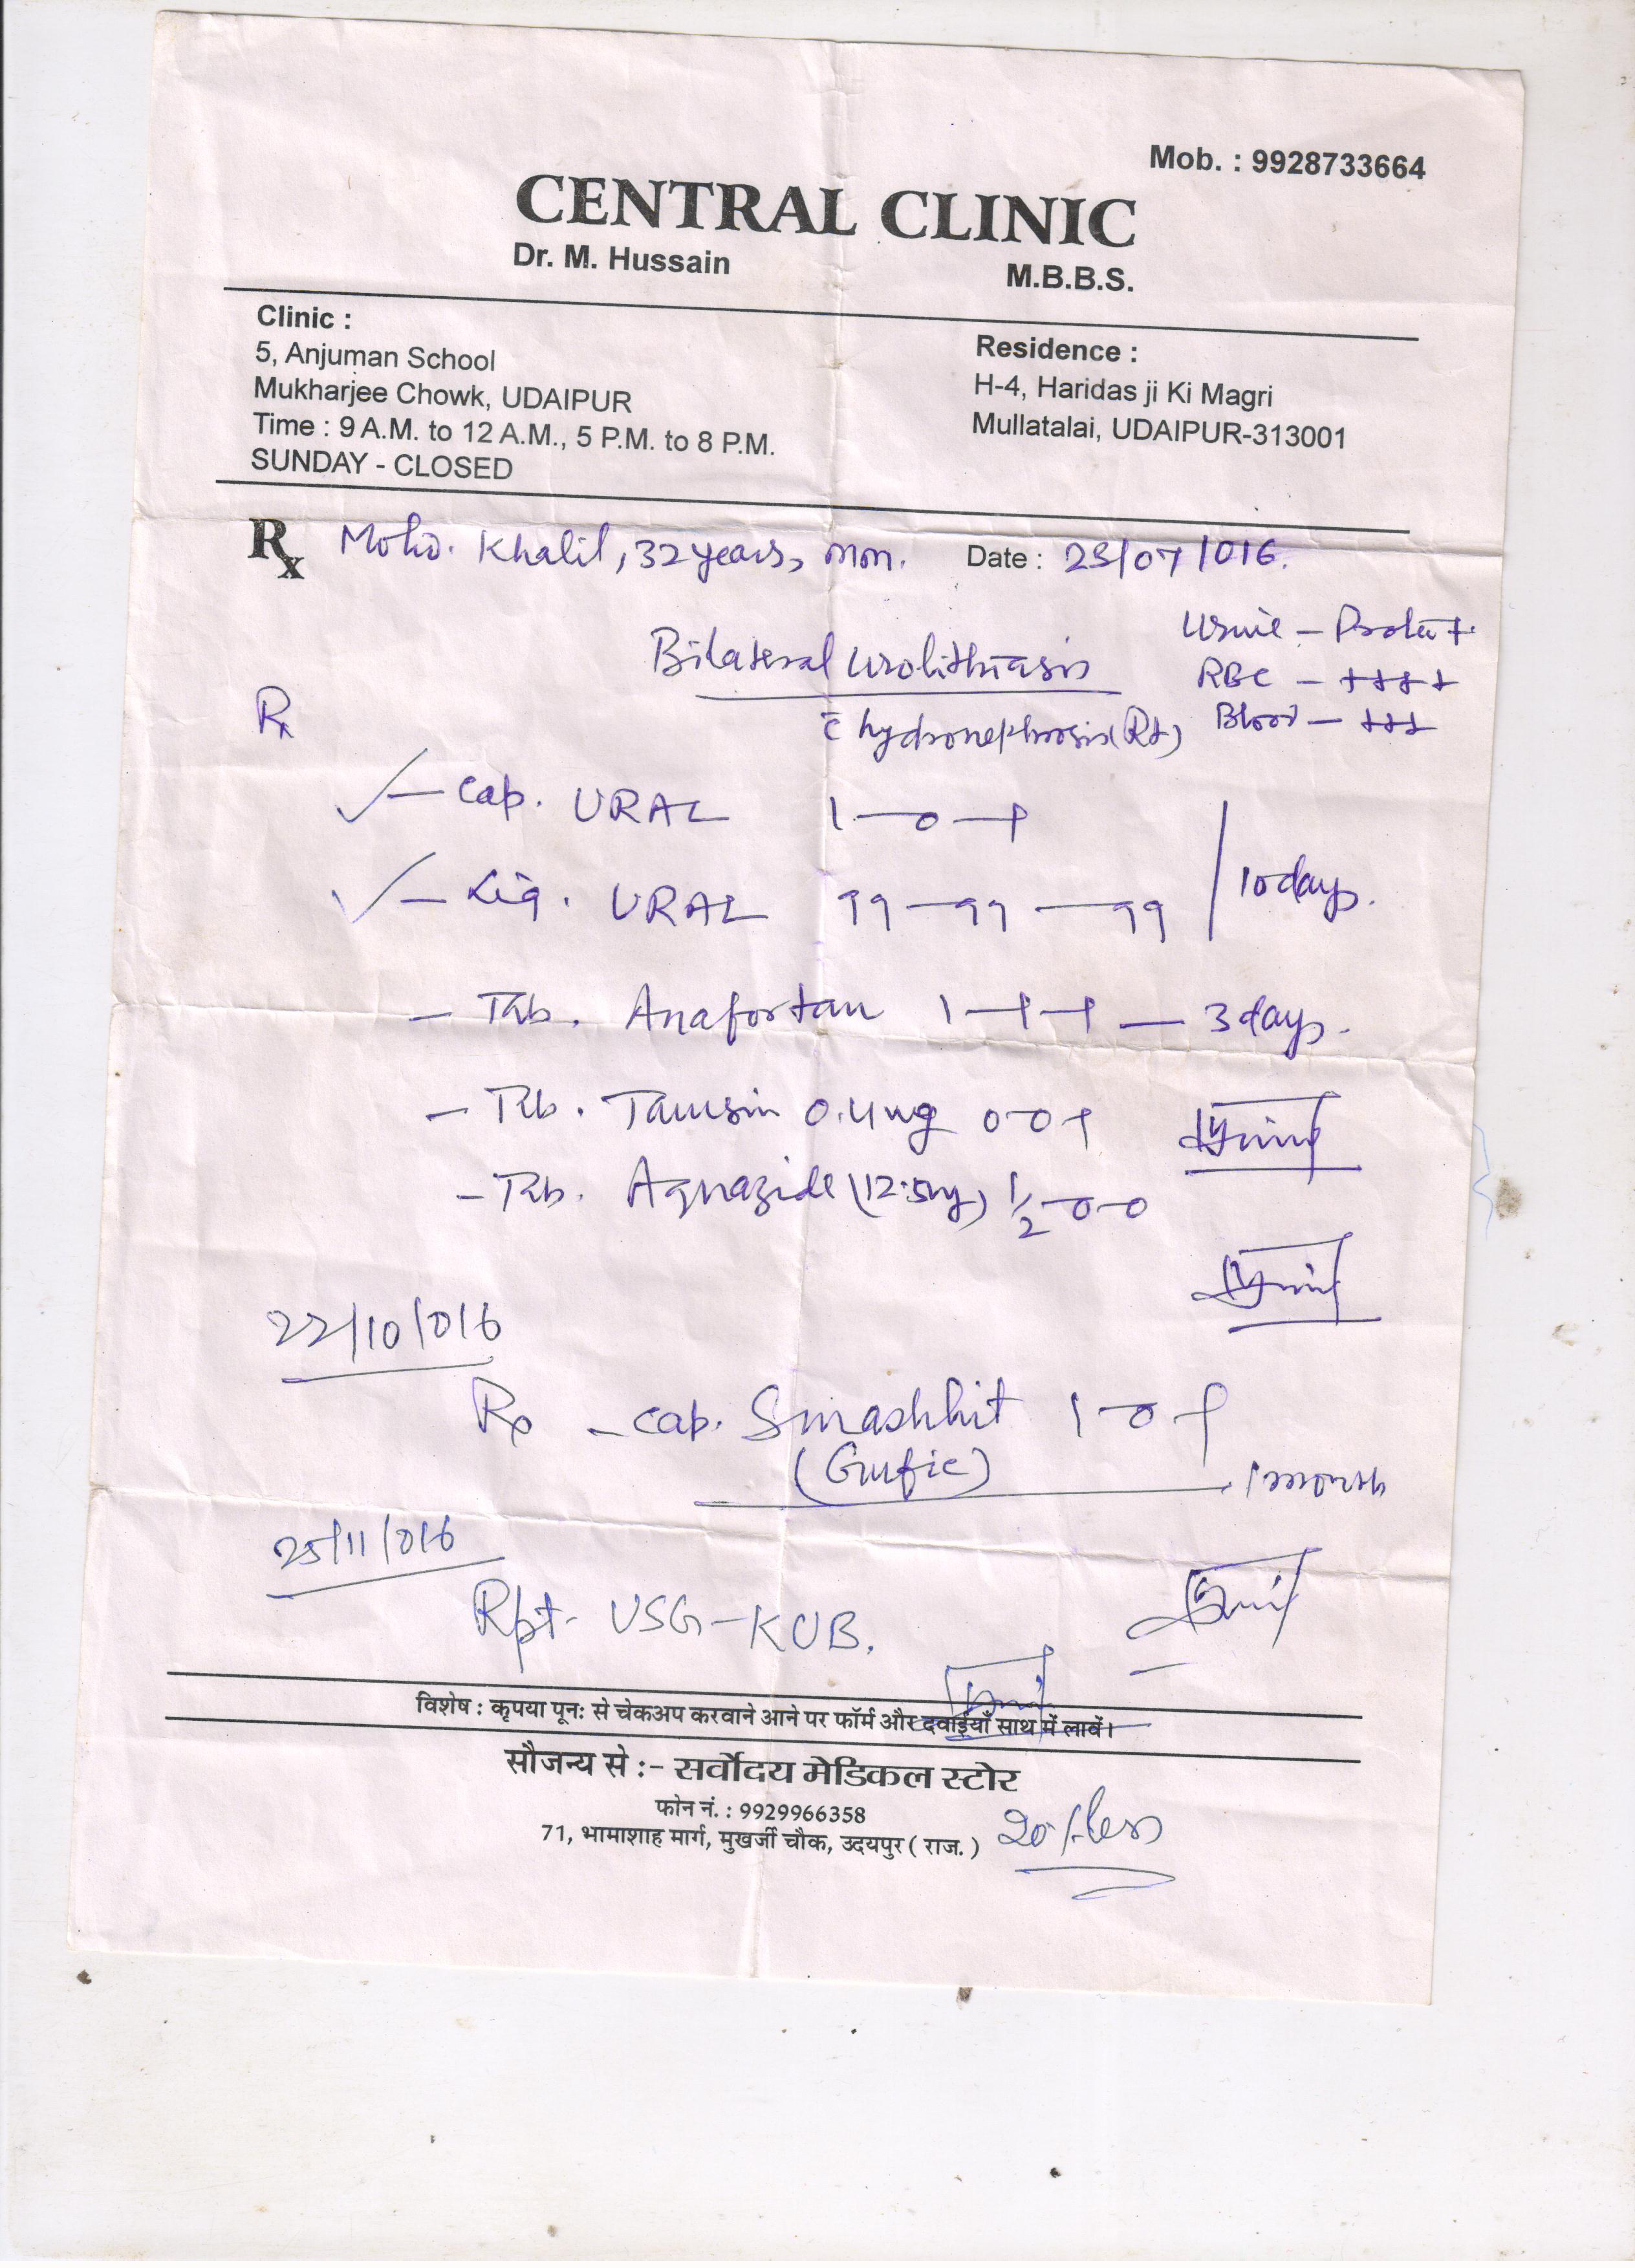 Mob. : 9928733664
CENTRAL CLINIC
Dr. M. Hussain M.B.B.S.
Clinic :
5, Anjuman School
Mukharjee Chowk, UDAIPUR
Time : 9 A.M. to 12 A.M., 5 P.M. to 8 P.M.
SUNDAY - CLOSED
Residence :
H-4, Haridas ji Ki Magri
Mullatalai, UDAIPUR-313001
Rx Mohd. Khalil, 32 years, Date : 23/07/016.
Urine - Protein +
RBC - ++++
Blood - +++
Bilateral Urolithiasis
c̄ hydronephrosis (Rt)
Rx
✓ - Cap. URAL 1-0-1
✓ - Liq. URAL 99-99-99 10 days.
- Tab. Anafortan 1-1-1 - 3 days.
- Tab. Tamsin 0.4mg 0-0-1
- Tab. Aquazide (12.5mg) ½-0-0
22/10/016
Rx - Cap. Smashhit 1-0-1
(Gufic) 1 month
25/11/016
Rpt. USG-KUB.
विशेष : कृपया पूनः से चेकअप करवाने आने पर फॉर्म और दवाईयाँ साथ में लावें।
सौजन्य से :- सर्वोदय मेडिकल स्टोर
फोन नं. : 9929966358
71, भामाशाह मार्ग, मुखर्जी चौक, उदयपुर ( राज. )
20% less